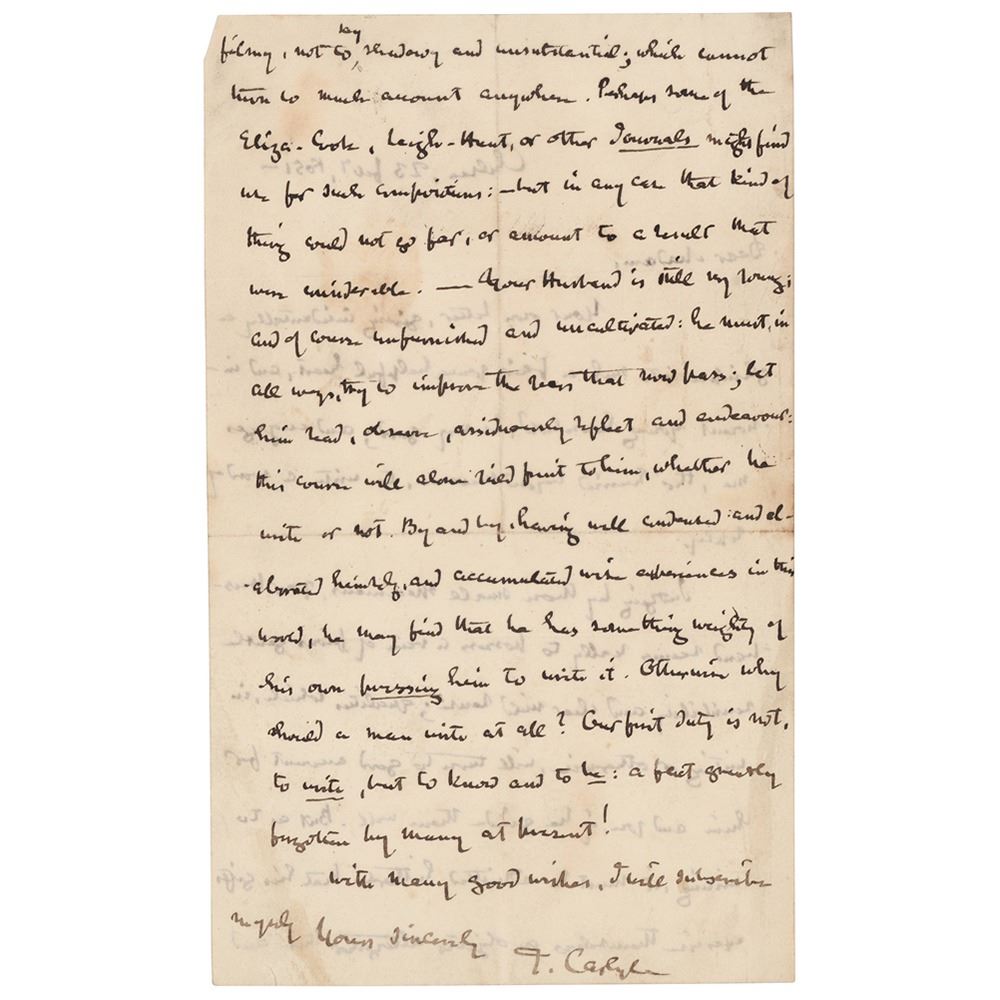 filmy, not to say, shadowy and unsubstantial; which cannot
turn to much account anywhere. Perhaps some of the
Eliza-Cook, Leigh-Hunt, or other Journals might find
use for such compositions: — but in any case that kind of
thing could not go far, or amount to a result that
were considerable. — Your Husband is still very young;
and of course unfurnished and uncultivated: he must, in
all ways, try to improve the years that now pass; let
him read, observe, assiduously reflect and endeavour:
this course will alone yield fruit to him, whether he
write or not. By and by, having well condensed and el-
-aborated himself, and accumulated wise experiences in this
world, he may find that he has something weighty of
his own pressing him to write it. Otherwise why
should a man write at all? Our first duty is not,
to write, but to know and to be: a fact greatly
forgotten by many at present!
With many good wishes, I will subscribe
myself Yours sincerely
T. Carlyle